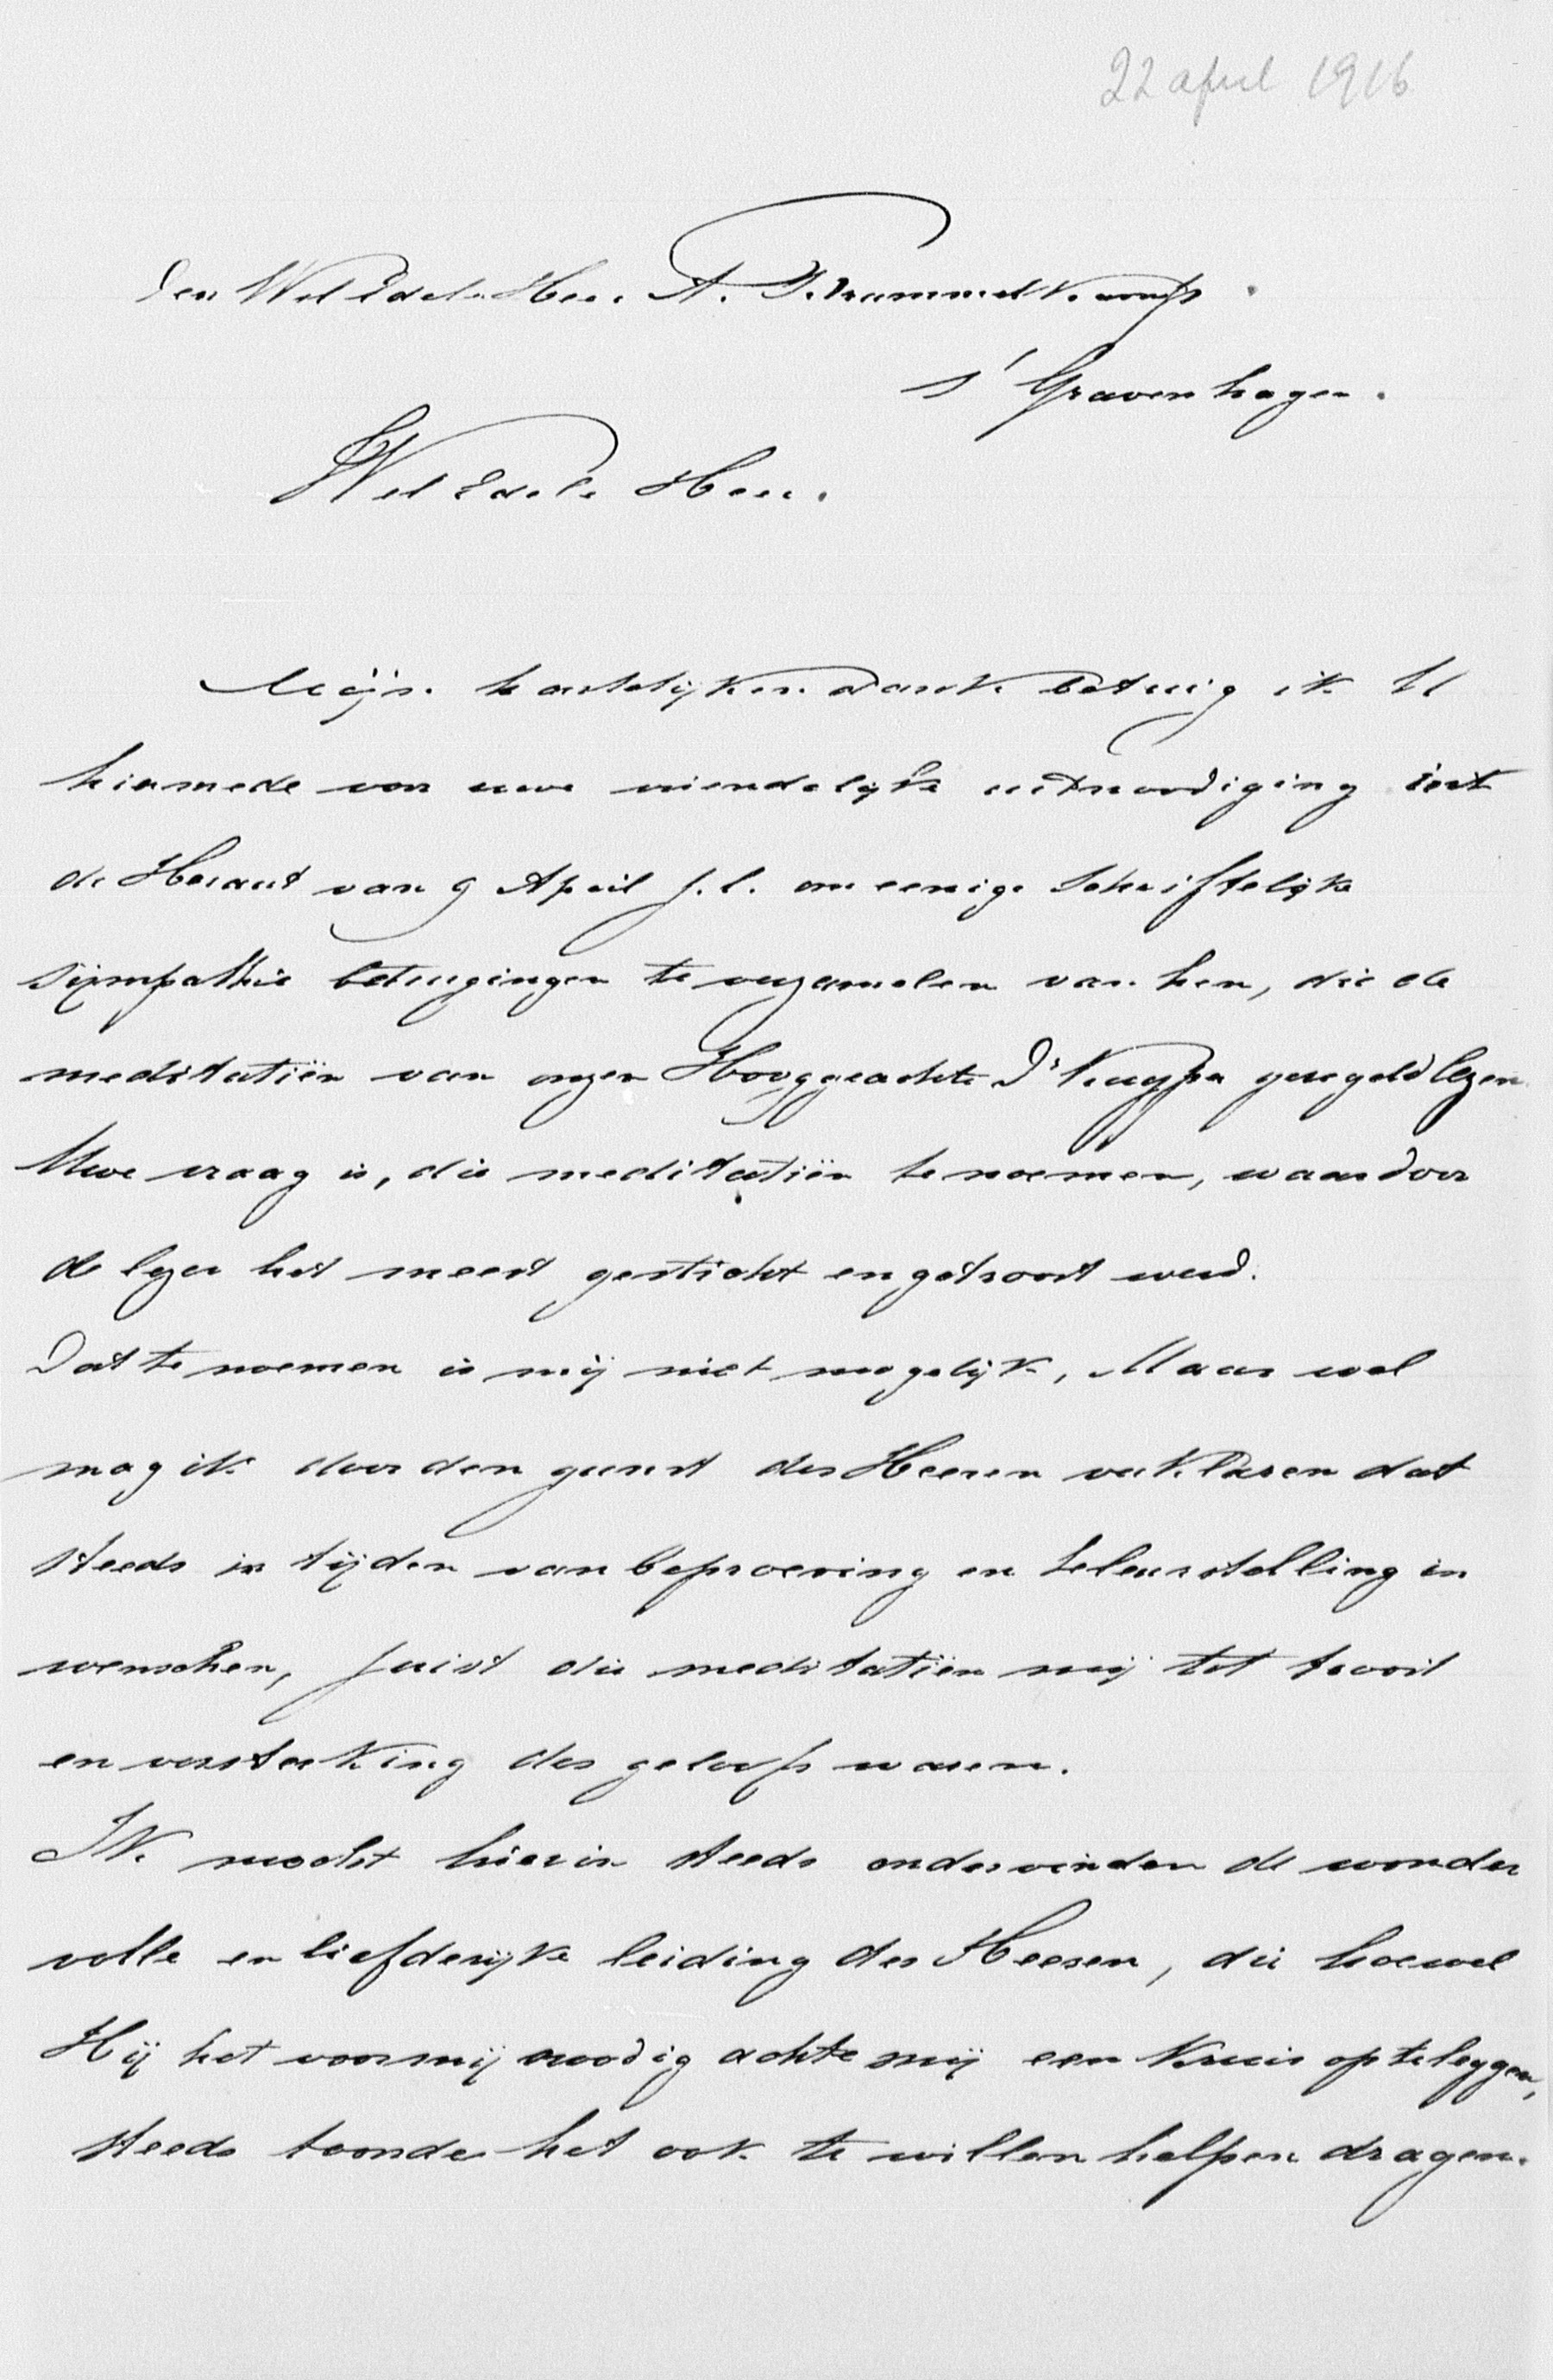 22 april 1916
Den WelEdele Heer A. Brummelkamp.
s'Gravenhagen.
WelEdele Heer.
Mijn hartelijken dank betuig ik U
hiermede voor uwe vriendelijke uitnoodiging in't
de Heraut van 9 April j.l. om eenige Schriftelijke
sijmpathie betuigingen te verzamelen van hen, die de
meditatiën van onzen Hooggeachte Dr Kuyper geregeld lezen
Uwe vraag is, die meditatiën te noemen, waardoor
de lezer het meest gesticht en getroost werd.
Dat te noemen is mij niet mogelijk, Maar wel
mag ik door den geest des Heeren verklaren dat
steeds in tijden van beproeving en teleurstelling in
menschen, juist die meditatiën mij tot troost
en versterking des geloofs waren.
Ik mocht hierin steeds ondervinden de wonder
volle en liefderijke leiding des Heeren, die hoewel
Hij het voor mij noodig achte mij een Kruis op te leggen,
steeds toonde het ook te willen helpen dragen.